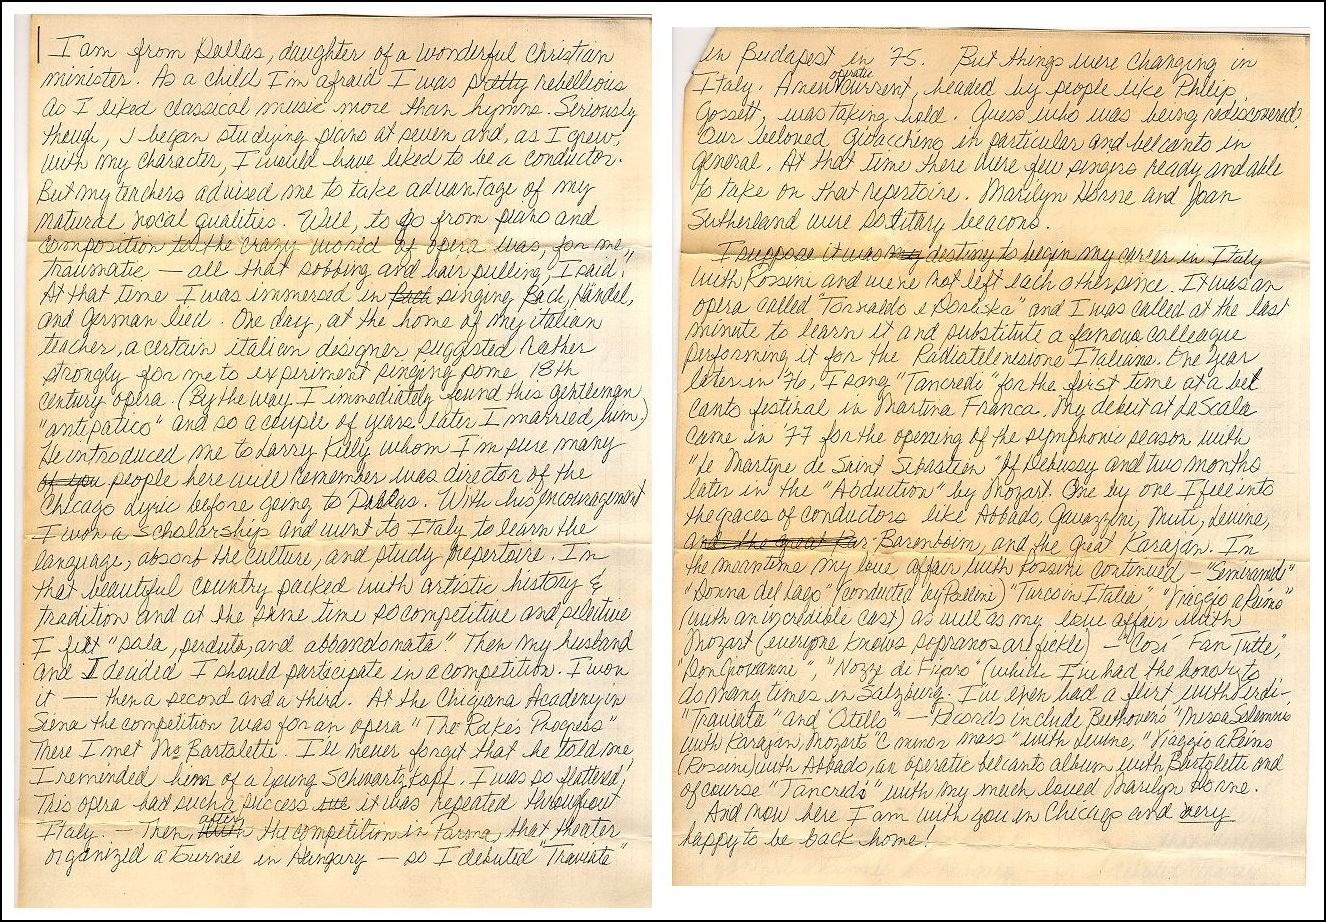 I am from Dallas, daughter of a wonderful Christian
minister. As a child I'm afraid I was pretty rebellious
as I liked classical music more than hymns. Seriously
though, I began studying piano at seven and, as I grew,
with my character, I would have liked to be a conductor.
But my teachers advised me to take advantage of my
natural vocal qualities. Well, to go from piano and
composition to the crazy world of opera was, for me,
traumatic — all that sobbing and hair pulling, I said!
At that time I was immersed in singing Bach, Händel,
and German lied. One day, at the home of my italian
teacher, a certain italian designer suggested rather
strongly for me to experiment singing some 18th
century opera. (By the way I immediately found this gentleman
"antipatico" and so a couple of years later I married him.)
He introduced me to Larry Kelly whom I'm sure many
of you people here will remember was director of the
Chicago Lyric before going to Dallas. With his encouragement
I won a scholarship and went to Italy to learn the
language, absorb the culture, and study repertoire. In
that beautiful country packed with artistic history &
tradition and at the same time so competitive and selective
I felt "sola, perduta, and abbandonata". Then my husband
and I decided I should participate in a competition. I won
it — then a second and a third. At the Chigiana Academy in
Siena the competition was for an opera "The Rake's Progress"
There I met Mo Bartoletti. I'll never forget that he told me
I reminded him of a young Schwartzkopf. I was so flattered!
This opera had such a success it was repeated throughout
Italy. — Then, after the competition in Parma, that theater
organized a tournée in Hungary — so I debuted "Traviata"
in Budapest in '75. But things were changing in
Italy. A new operatic current, headed by people like Philip
Gossett, was taking hold. Guess who was being rediscovered?
Our beloved Gioacchino in particular and belcanto in
general. At that time there were few singers ready and able
to take on that repertoire. Marilyn Horne and Joan
Sutherland were solitary beacons.
I suppose it was my destiny to begin my career in Italy
with Rossini and we've not left each other since. It was an
opera called "Torvaldo e Dorliska" and I was called at the last
minute to learn it and substitute a famous colleague
performing it for the Radiotelevisione Italiana. One year
later in '76, I sang "Tancredi" for the first time at a bel
canto festival in Martina Franca. My debut at LaScala
came in '77 for the opening of the symphonic season with
"Le Martyre de Saint Sebastien" of Debussy and two months
later in the "Abduction" by Mozart. One by one I fell into
the graces of conductors like Abbado, Gavazzeni, Muti, Levine,
and the great Kar- Barenboim, and the great Karajan. In
the meantime my love affair with Rossini continued — "Semiramide"
"Donna del Lago" (conducted by Pollini) "Turco in Italia" "Viaggio a Reims"
(with an incredible cast) as well as my love affair with
Mozart (everyone knows sopranos are fickle) — "Cosi Fan Tutte",
"Don Giovanni", "Nozze di Figaro" (which I've had the honor to
do many times in Salzburg. I've even had a flirt with Verdi-
"Traviata" and "Otello" — Records include Beethoven's "Missa Solemnis
with Karajan, Mozart's "C minor mass" with Levine, "Viaggio a Reims
(Rossini) with Abbado, an operatic belcanto album with Bartoletti and
of course "Tancredi" with my much loved Marilyn Horne.
And now here I am with you in Chicago and very
happy to be back home!